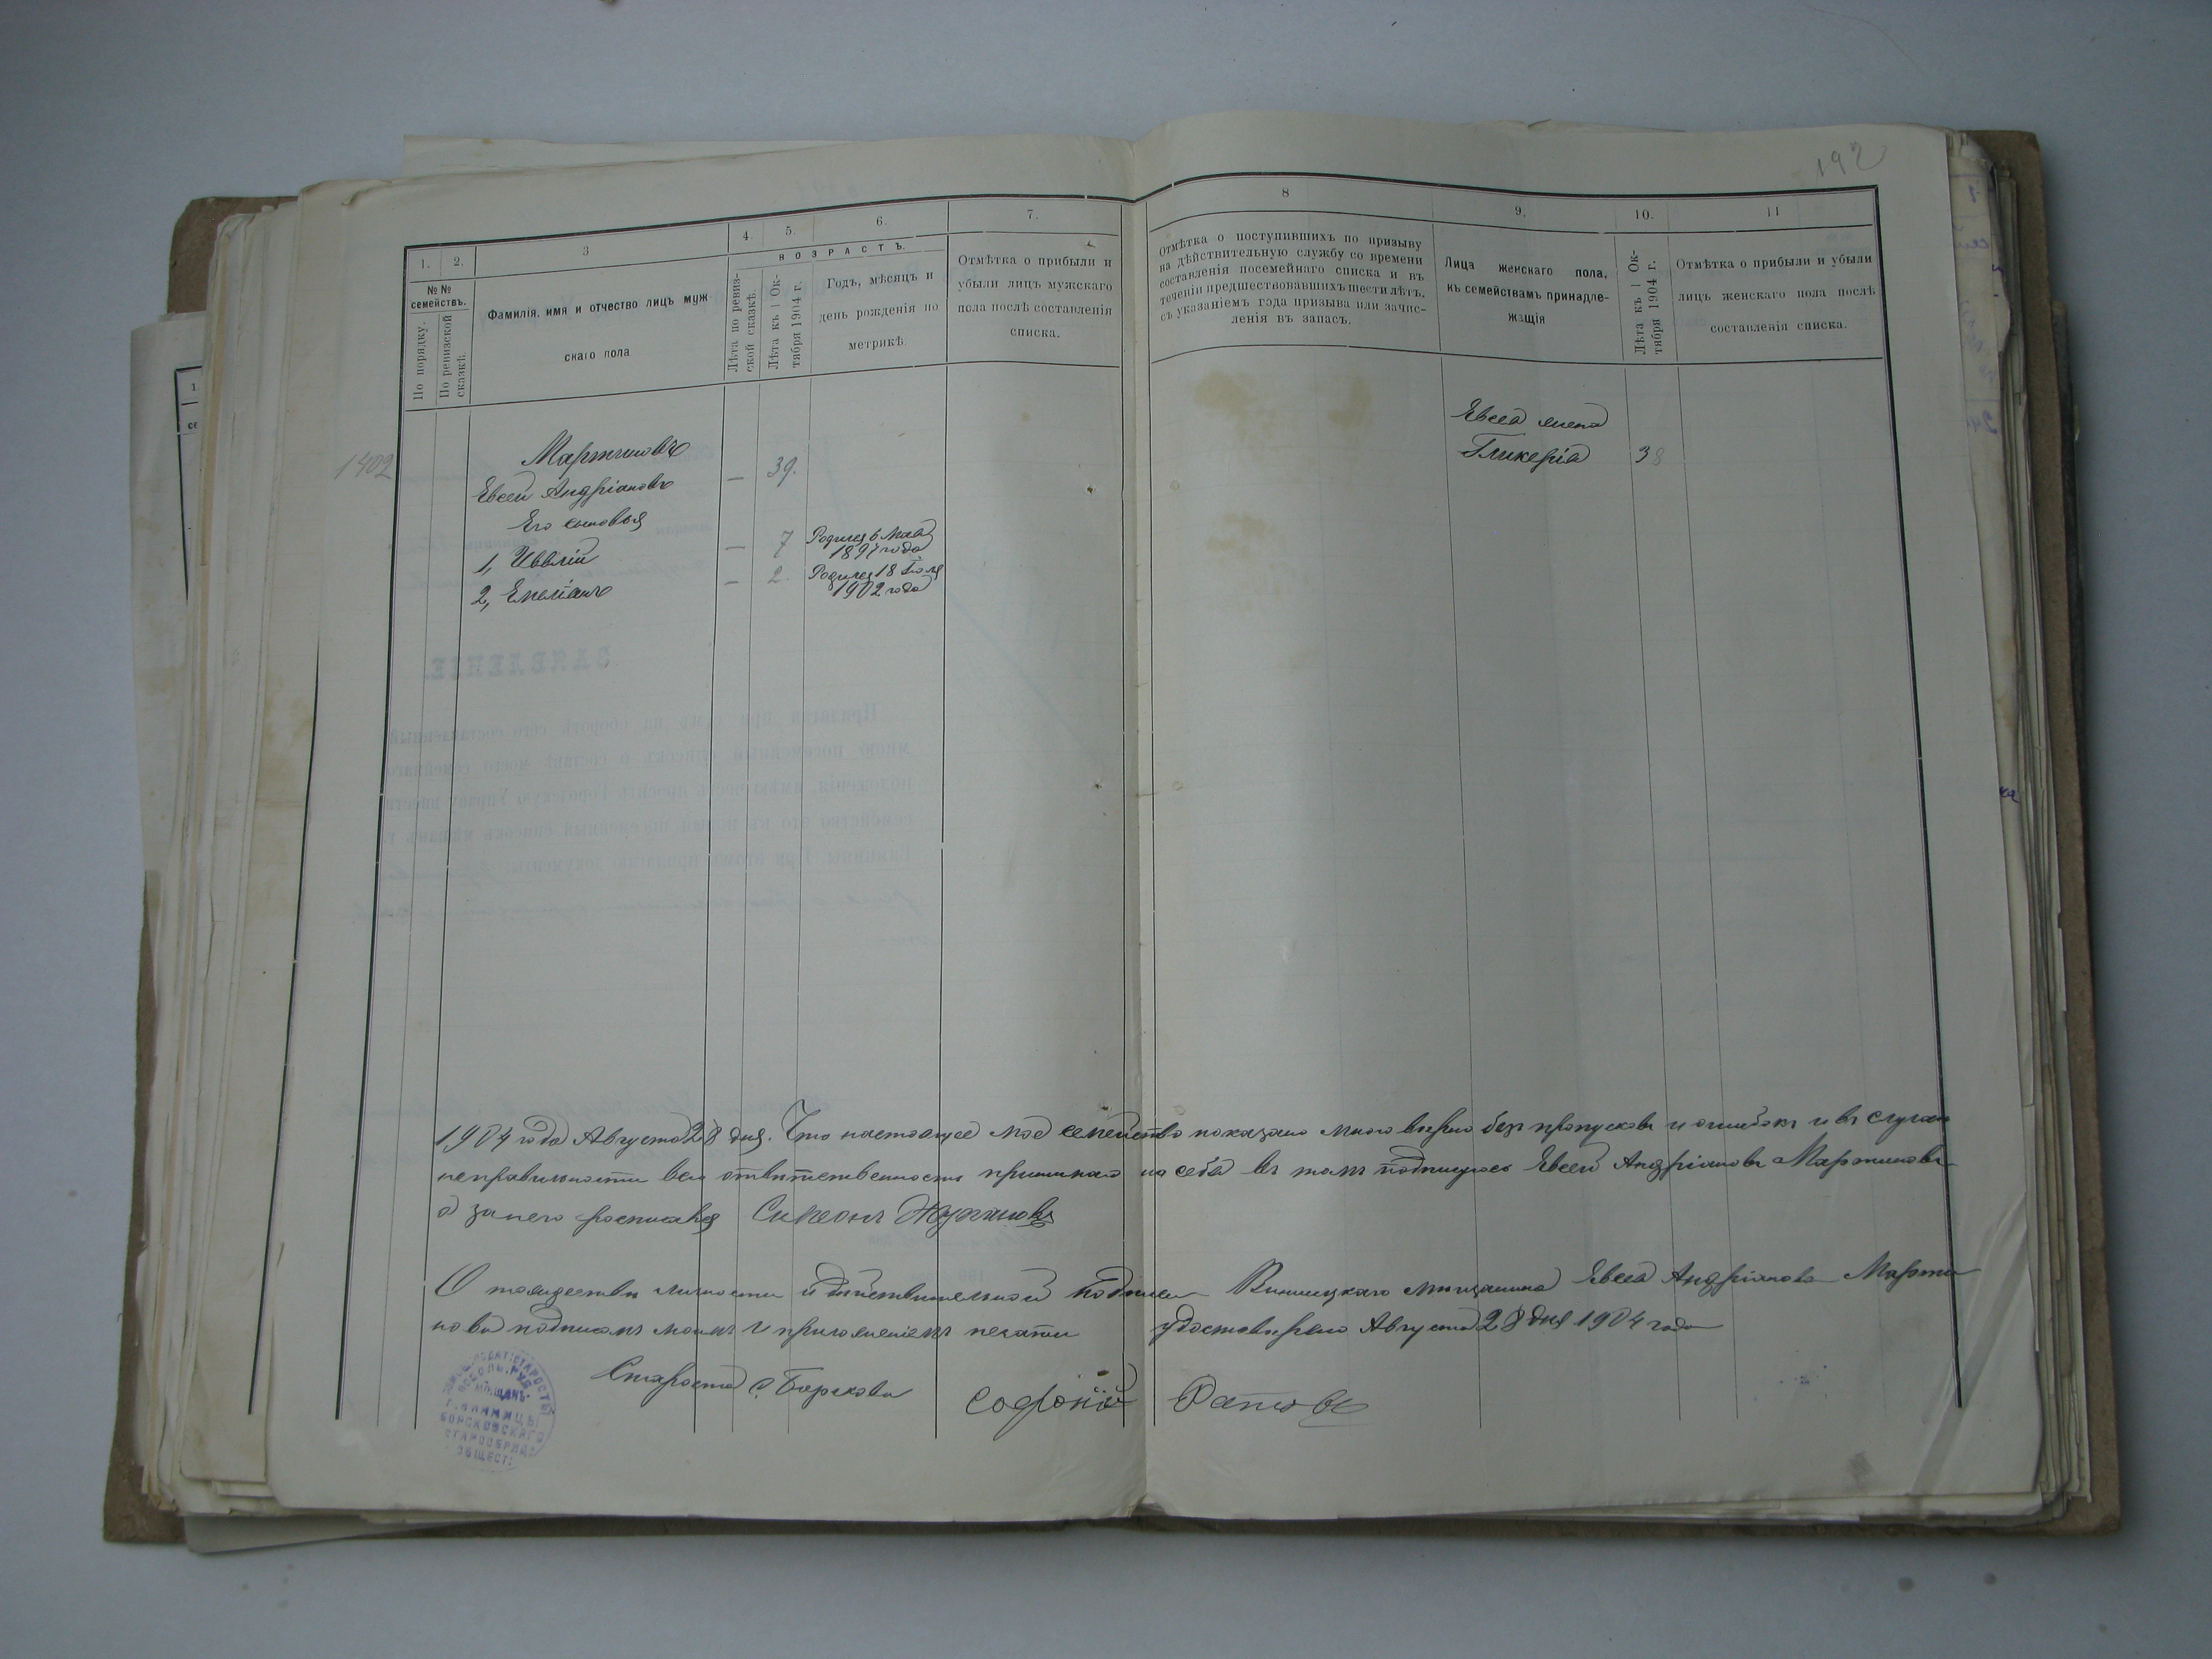 192
1.
2.
3
4.
5.
6.
7.
8
9.
10.
11
№№ семействъ.
По порядку.
По ревизской сказкѣ.
Фамилія, имя и отчество лицъ муж-
скаго пола
ВОЗРАСТЪ.
Лѣта по ревиз-
ской сказкѣ.
Лѣта къ 1 Ок-
тября 1904 г.
Годъ, мѣсяцъ и
день рожденія по
метрикѣ.
Отмѣтка о прибыли и
убыли лицъ мужскаго
пола послѣ составленія
списка.
Отмѣтка о поступившихъ по призыву
на дѣйствительную службу со времени
составленія посемейнаго списка и въ
теченіи предшествовавшихъ шести лѣтъ,
съ указаніемъ года призыва или зачис-
ленія въ запасъ.
Лица женскаго пола,
къ семействамъ принадле-
жащія
Лѣта къ 1 Ок-
тября 1904 г.
Отмѣтка о прибыли и убыли
лицъ женскаго пола послѣ
составленія списка.
1402
Мартиновъ
Евсей Андріановъ — 39.
Его сыновья
1, — 7 Родился 6 Мая
1897 года
2, Емеліанъ — 2. Родился 18 Іюля
1902 года
Евсея жена
Гликерія 38
1904 года Августа 28 дня. Что настоящее мое семейство показано мною вѣрно безъ пропусковъ и ошибокъ и въ случаи
неправильности всю отвѣтственность принимаю на себя въ томъ подписуюсь Евсей Андріановъ Мартиновъ
а за него росписався Симеонъ
О тождествѣ личности и дѣйствительной подписи Винницкаго мѣщанина Евсея Андріанова Марти
нова подписомъ моимъ и приложеніемъ печати удостовѣряю Августа 28 дня 1904 года
Староста с. Борскова Софоній
СТАРОСТЫ
МѢЩАНЪ
Г. ВИННИЦЫ
БОРСКОВСКАГО
СТАРООБРЯД.
ОБЩЕСТ.